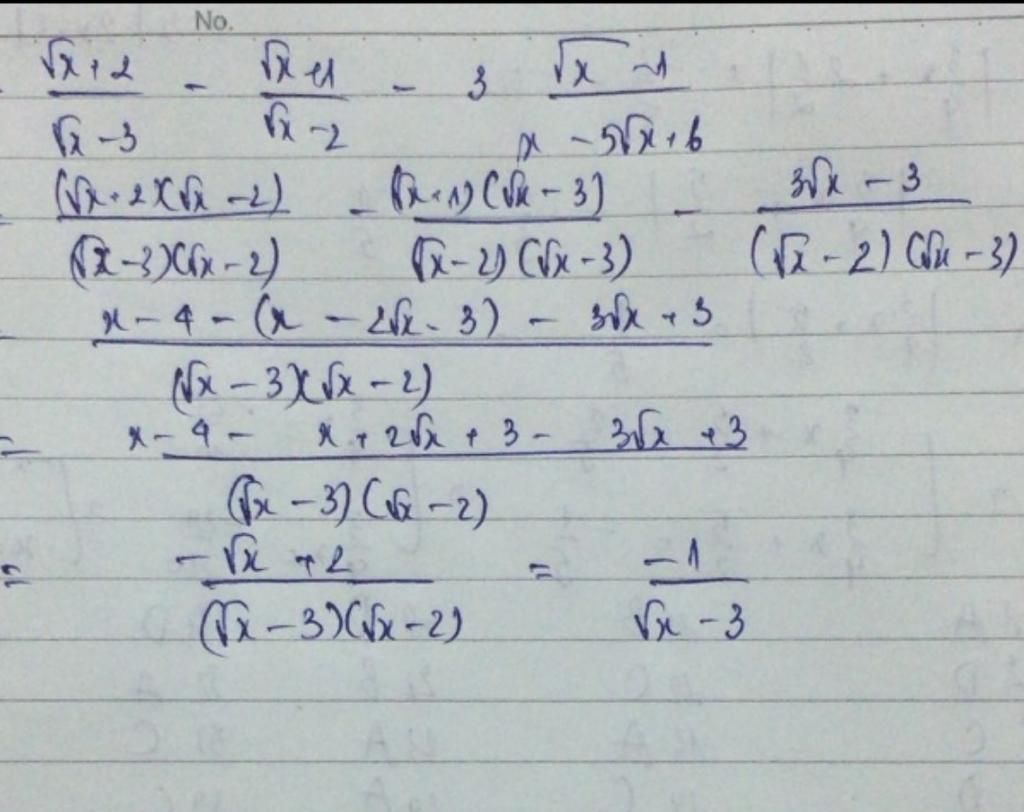 No.
\frac{\sqrt{x}+2}{\sqrt{x}-3} - \frac{\sqrt{x}+1}{\sqrt{x}-2} - 3 \frac{\sqrt{x}-1}{x-5\sqrt{x}+6}
\frac{(\sqrt{x}+2)(\sqrt{x}-2)}{(\sqrt{x}-3)(\sqrt{x}-2)} - \frac{(\sqrt{x}+1)(\sqrt{x}-3)}{(\sqrt{x}-2)(\sqrt{x}-3)} - \frac{3\sqrt{x}-3}{(\sqrt{x}-2)(\sqrt{x}-3)}
\frac{x-4-(x-2\sqrt{x}-3)-3\sqrt{x}+3}{(\sqrt{x}-3)(\sqrt{x}-2)}
= \frac{x-4-x+2\sqrt{x}+3-3\sqrt{x}+3}{(\sqrt{x}-3)(\sqrt{x}-2)}
= \frac{-\sqrt{x}+2}{(\sqrt{x}-3)(\sqrt{x}-2)} = \frac{-1}{\sqrt{x}-3}